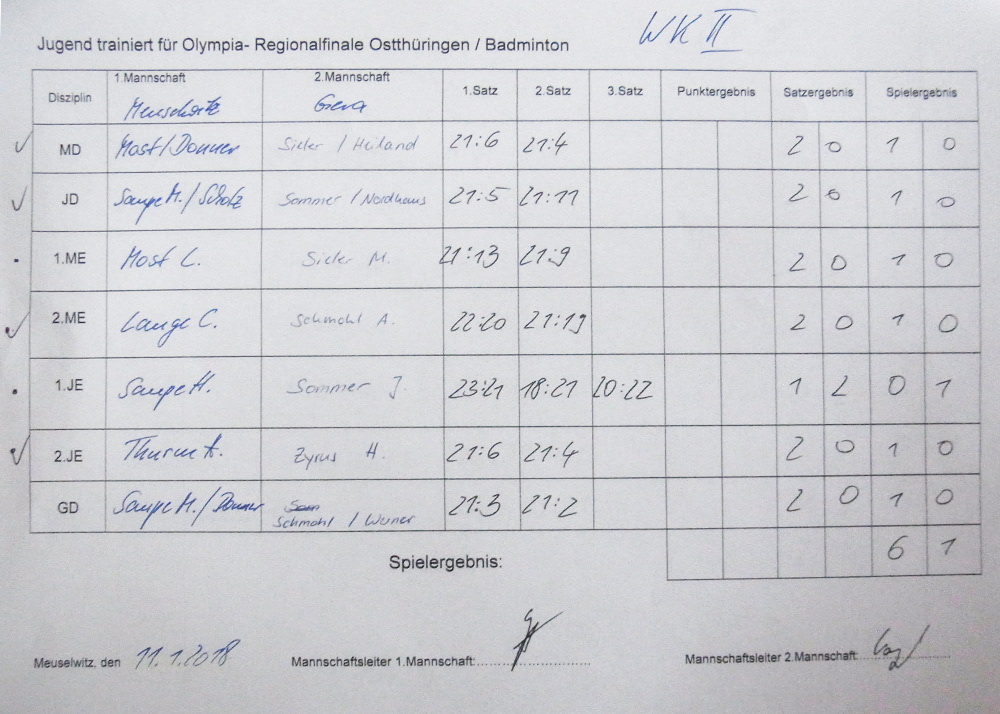 WK II
Jugend trainiert für Olympia- Regionalfinale Ostthüringen / Badminton
Disziplin 1.Mannschaft 2.Mannschaft 1.Satz 2.Satz 3.Satz Punktergebnis Satzergebnis Spielergebnis
Gera
MD Most/Donner Sieler / Heiland 21:6 21:4 2 0 1 0
JD Saupe M./Scholz Sommer / Nordhaus 21:5 21:11 2 0 1 0
1.ME Most L. Sieler M. 21:13 21:9 2 0 1 0
2.ME Lange C. Schmohl A. 22:20 21:19 2 0 1 0
1.JE Saupe H. Sommer J. 23:21 18:21 20:22 1 2 0 1
2.JE Thurm A. Zyrus H. 21:6 21:4 2 0 1 0
GD Saupe M./Donner Schmohl / Weiner 21:3 21:2 2 0 1 0
Spielergebnis: 6 1
Meuselwitz, den 11.1.2018 Mannschaftsleiter 1.Mannschaft: Mannschaftsleiter 2.Mannschaft: